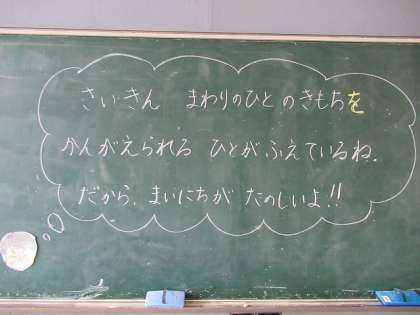 さいきん まわりのひとのきもちを
かんがえられる ひとが ふえているね.
だから、まいにちが たのしいよ!!